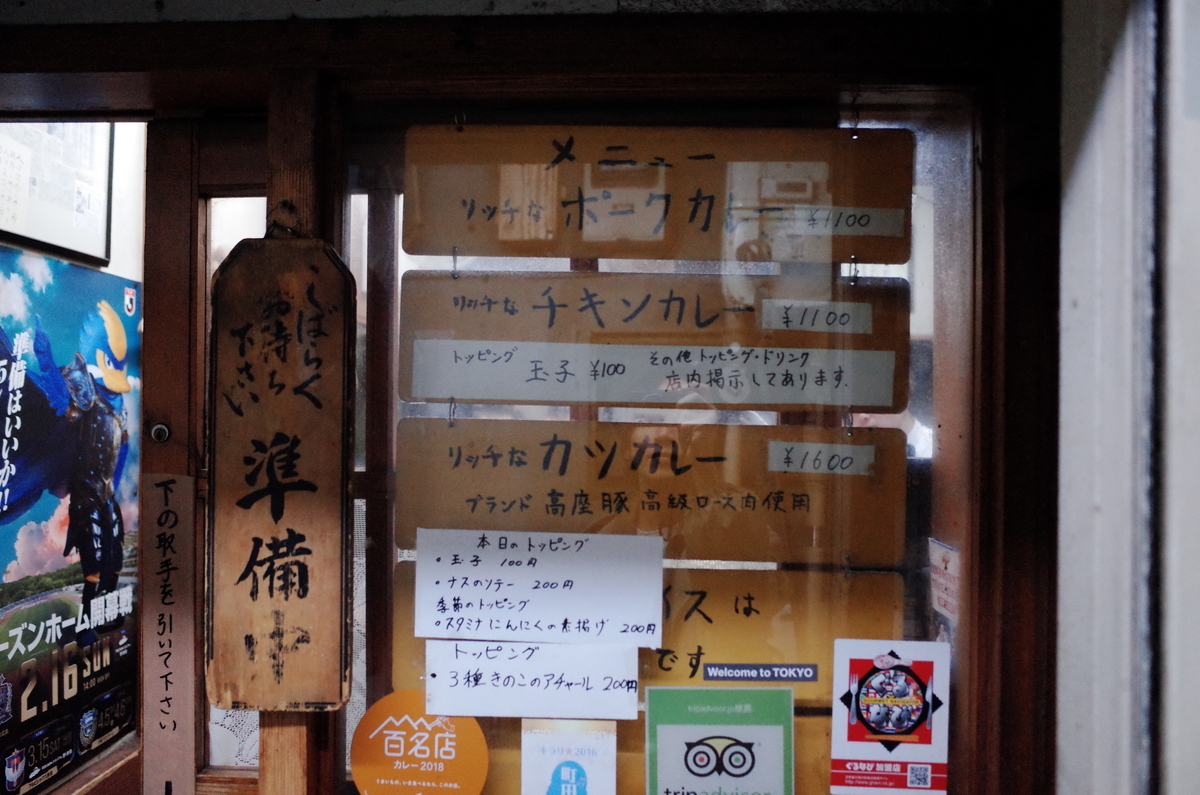 メニュー
リッチな ポークカレー ¥1100
リッチな チキンカレー ¥1100
トッピング 玉子 ¥100 その他 トッピング・ドリンク
店内掲示してあります.
リッチな カツカレー ¥1600
ブランド 高座豚 高級ロース肉使用
本日のトッピング
・玉子 100円
・ナスのソテー 200円
季節のトッピング
・スタミナ にんにくの素揚げ 200円
トッピング
・3種きのこのアチャール 200円
イスは
です
Welcome to TOKYO
しばらく
お待ち
下さい
準備中
下の取手を引いて下さい
準備はいいか!!
ーズンホーム開幕戦
2.16 SUN
14:00
3.15 SAT
百名店
カレー 2018
キラリ★2016
町田
tripadvisor
ぐるなび 加盟店